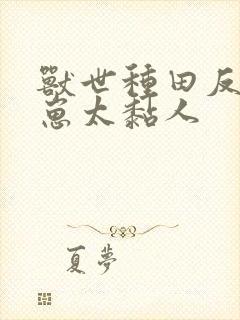 獸世種田反
崽太黏人
夏夢